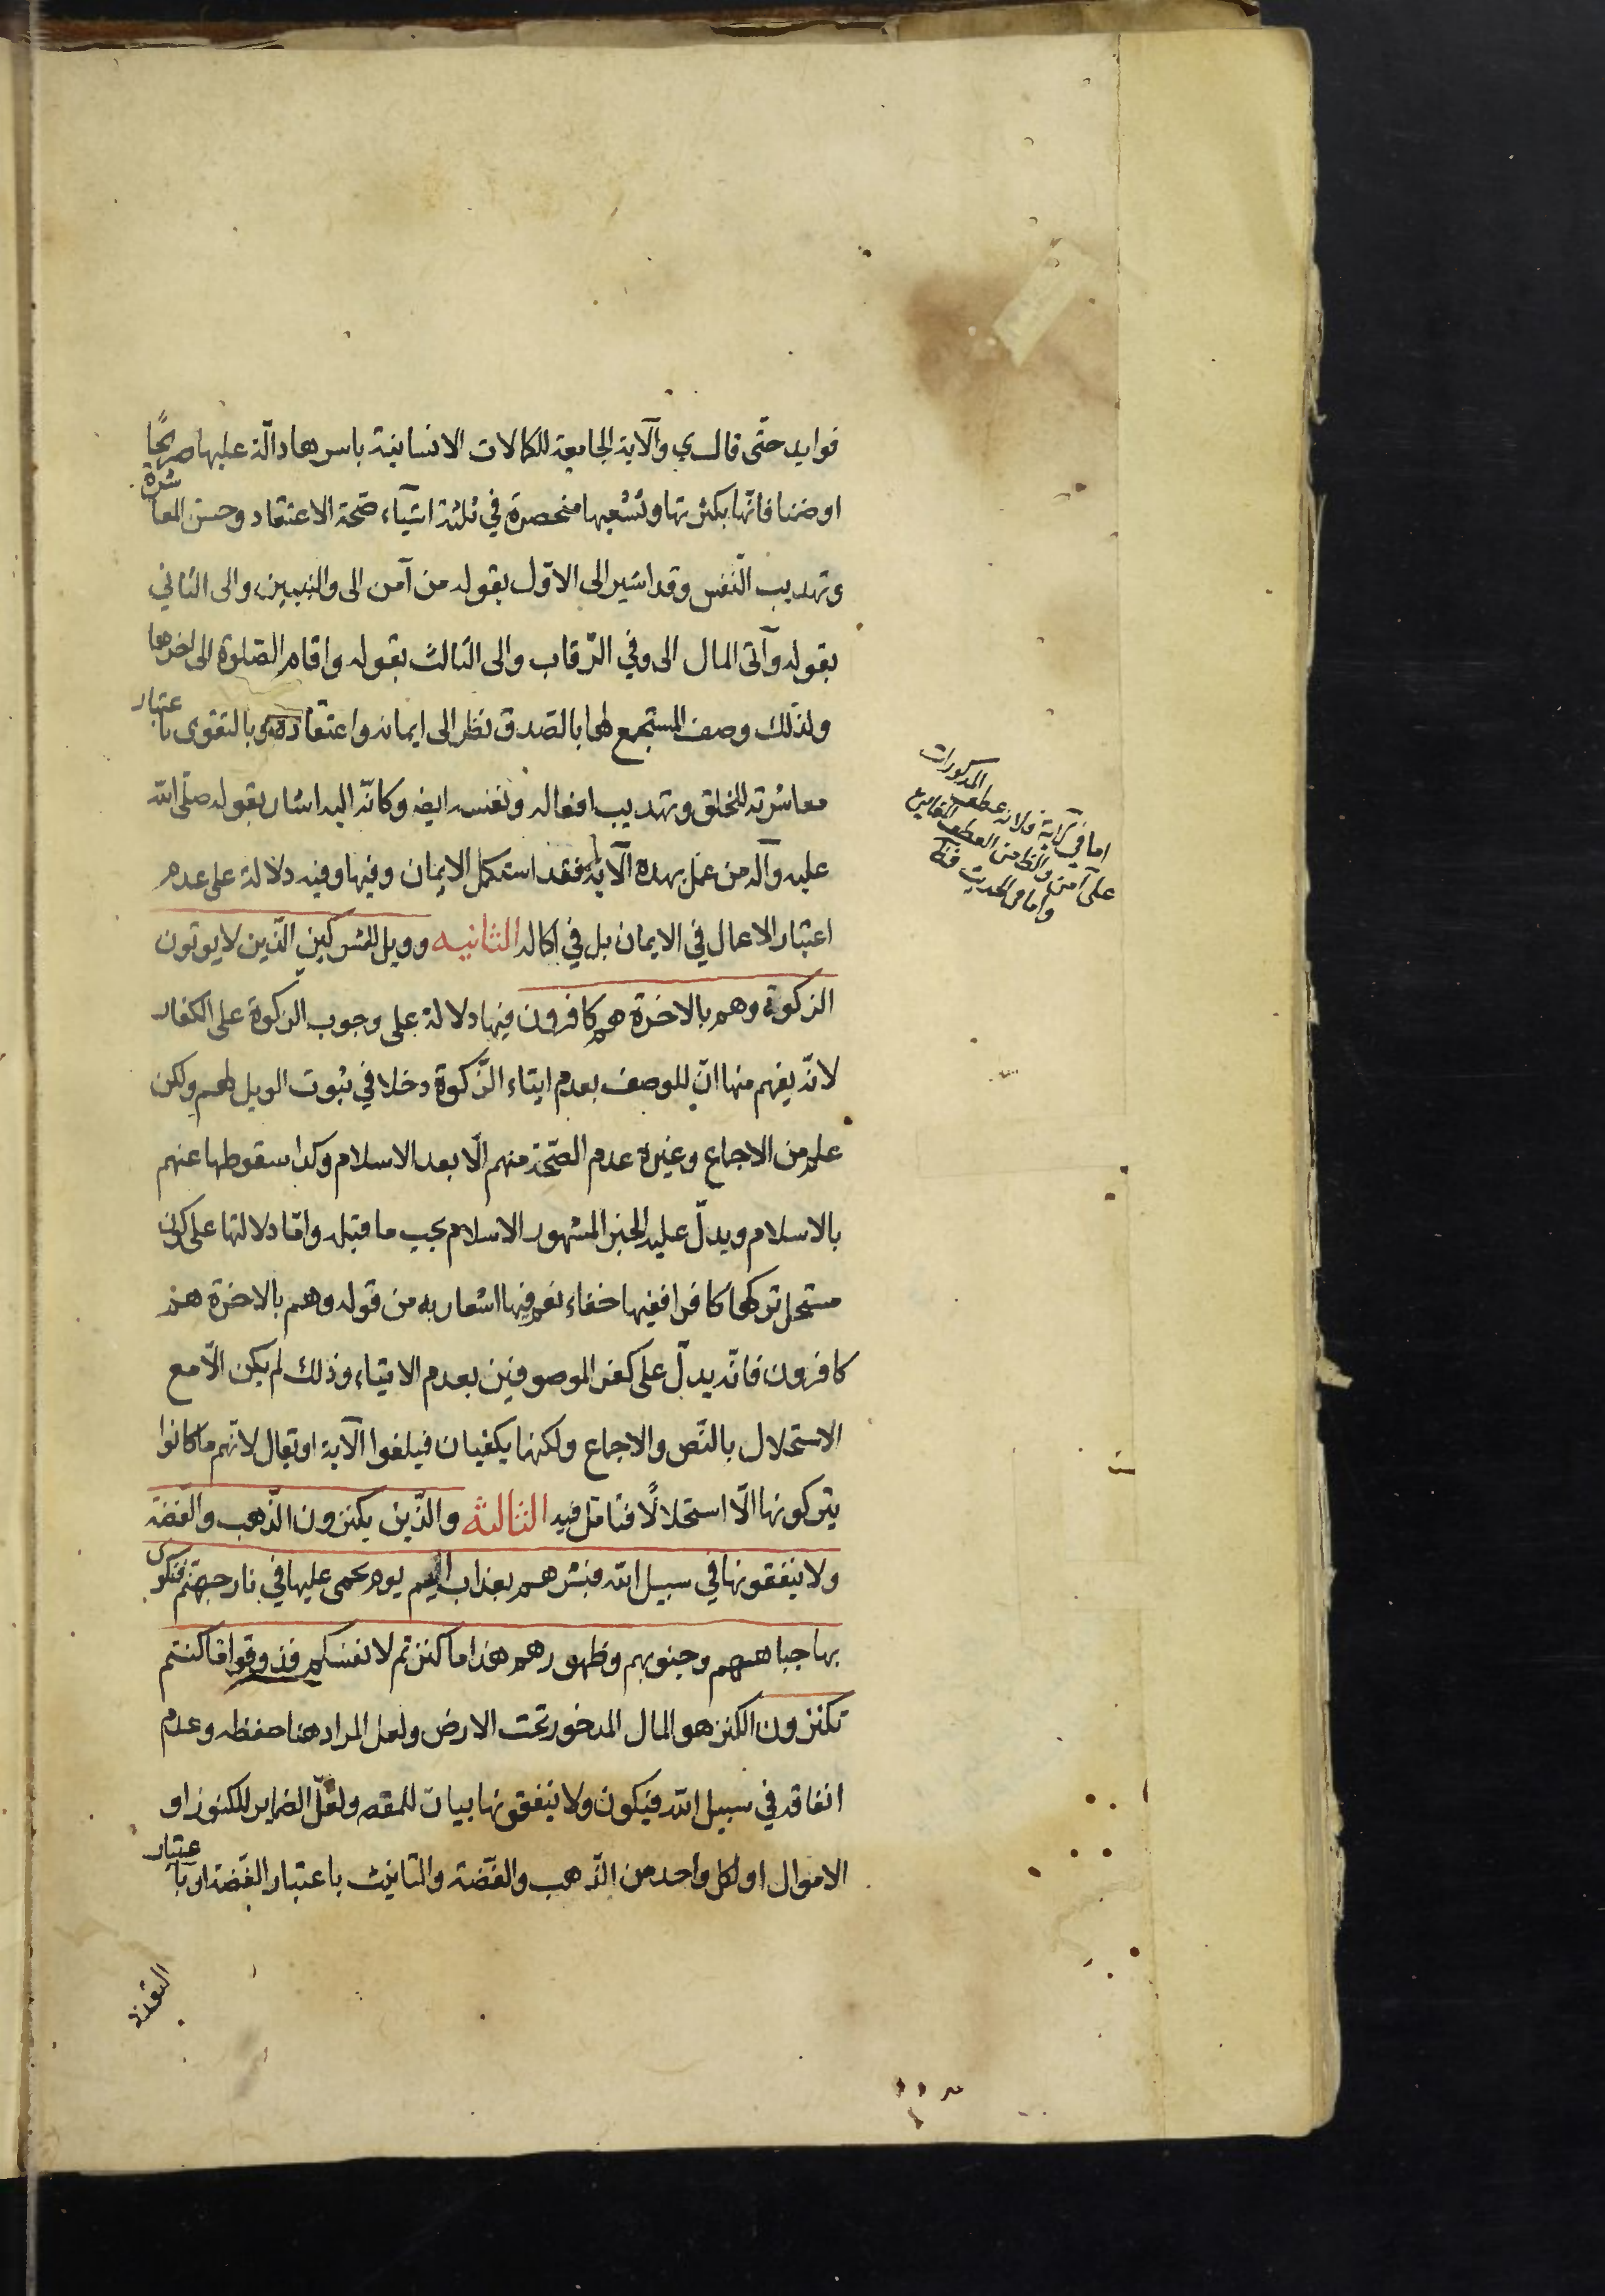 فوايد حتّى قال ي والآية الجامعة للكمالات الانسانية باسرها دالّة عليها صريحًا
او ضمنا فانّها بكثرتها وتشعبها منحصرة في ثلثة اشيآء صحّة الاعتقاد وحسن المعاشرة
وتهذيب النّفس وقد اشير الى الاوّل بقوله من آمن الى والنبيين والى الثاني
بقوله وآتى المال الى وفي الرّقاب والى الثالث بقوله واقام الصّلوة الى اخرها
ولذلك وصف المستجمع لها بالصّدق نظرا الى ايمانه واعتقاده وبالتقوى باعتبار
معاشرته للخلق وتهذيب افعاله ونفسه ايضه وكانّه اليه اشار بقوله صلّى الله
عليه وآله من عمل بهذه الآية فقد استكمل الايمان وفيها وفيه دلالة على عدم
اعتبار الاعمال في الايمان بل في اكماله الثانيه وويل للمشركين الّذين لا يوتون
الزكوة وهم بالاخرة هم كافرون فيها دلالة على وجوب الزكوة على الكفار
لانّه يفهم منها انّ للوصف بعدم ايتاء الزّكوة دخلا في ثبوت الويل لهم ولكن
علم من الاجماع وغيره عدم الصّحّة منهم الّا بعد الاسلام وكذا سقوطها عنهم
بالاسلام ويدلّ عليه الخبر المشهور الاسلام يجب ما قبله وامّا دلالتها على كون
مستحل تركها كافرا ففيها خفاء نعم فيها اشعار به من قوله وهم بالاخرة هم
كافرون فانّه يدلّ على كفر الموصوفين بعدم الايتاء وذلك لم يكن الّا مع
الاستحلال بالنّص والاجماع ولكنهما يكفيان فيلغوا الآية او يقال لانهم ما كانوا
يتركونها الّا استحلالًا فتامّل فيه الثالثه والّذين يكنزون الذّهب والفضّة
ولا ينفقونها في سبيل الله فبشرهم بعذاب اليم يوم يحمى عليها في نار جهنّم فتكوى
بها جباههم وجنوبهم وظهورهم هذا ما كنزتم لانفسكم فذوقوا ما كنتم
تكنزون الكنز هو المال المدخور تحت الارض ولعل المراد هنا حفظه وعدم
انفاقه في سبيل الله فيكون ولا ينفقونها بيان للمقصه ولعلّ الضماير للكنوز او
الاموال او لكل واحد من الذّهب والفضّة والتانيث باعتبار الفضّة او باعتبار
اما في الآية فلانه عطف المذكورات
على آمن والظا من العطف المغايرة
واما في الحديث فظا